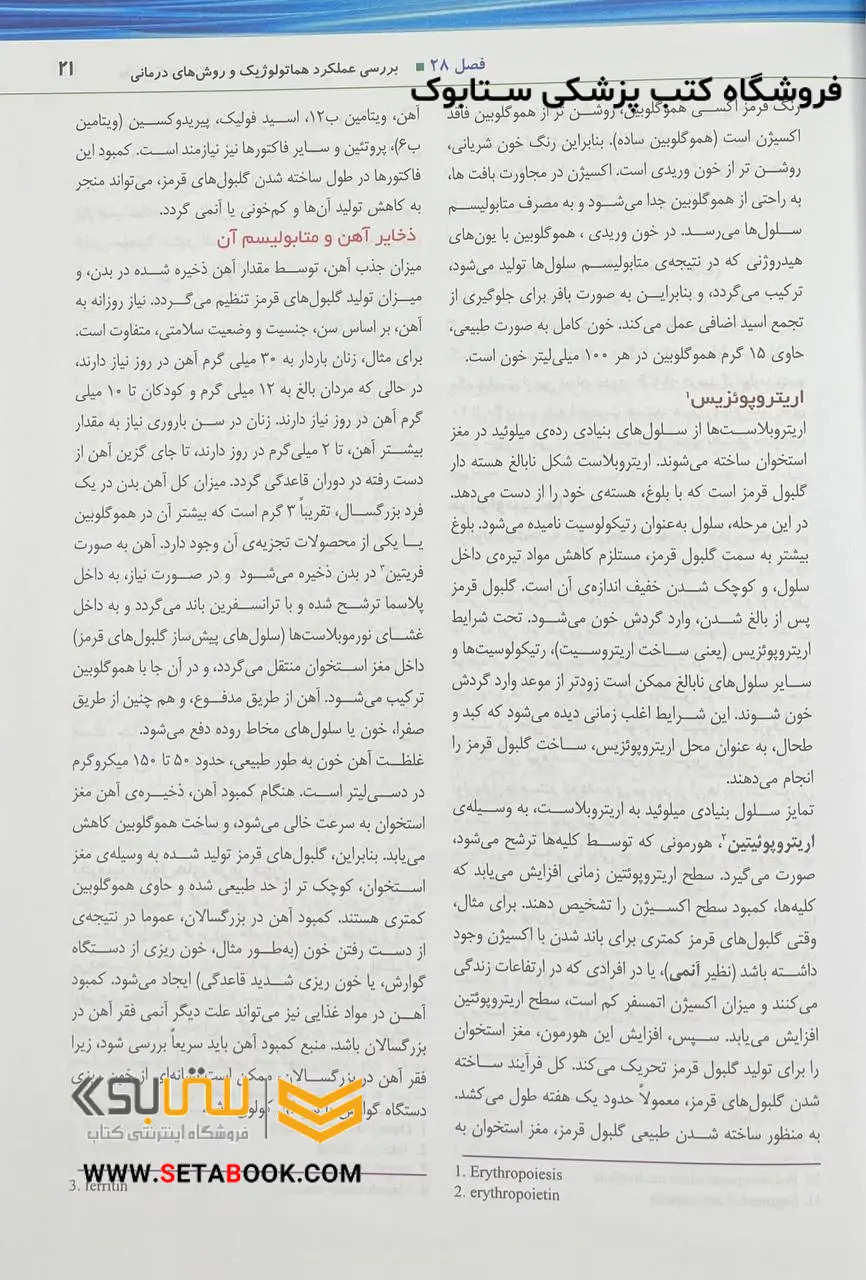 فصل ۲۸ ■ بررسی عملکرد هماتولوژیک و روش‌های درمانی ۲۱
فروشگاه کتب پزشکی ستابوک
رنگ قرمز اکسی هموگلوبین، روشن تر از هموگلوبین فاقد
اکسیژن است (هموگلوبین ساده). بنابراین رنگ خون شریانی،
روشن تر از خون وریدی است. اکسیژن در مجاورت بافت ها،
به راحتی از هموگلوبین جدا می‌شود و به مصرف متابولیسم
سلول‌ها می‌رسد. در خون وریدی ، هموگلوبین با یون‌های
هیدروژنی که در نتیجه‌ی متابولیسم سلول‌ها تولید می‌شود،
ترکیب می‌گردد، و بنابراین به صورت بافر برای جلوگیری از
تجمع اسید اضافی عمل می‌کند. خون کامل به صورت طبیعی،
حاوی ۱۵ گرم هموگلوبین در هر ۱۰۰ میلی‌لیتر خون است.
اریتروپوئزیس۱
اریتروبلاست‌ها از سلول‌های بنیادی رده‌ی میلوئید در مغز
استخوان ساخته می‌شوند. اریتروبلاست شکل نابالغ هسته دار
گلبول قرمز است که با بلوغ، هسته‌ی خود را از دست می‌دهد.
در این مرحله، سلول به‌عنوان رتیکولوسیت نامیده می‌شود. بلوغ
بیشتر به سمت گلبول قرمز، مستلزم کاهش مواد تیره‌ی داخل
سلول، و کوچک شدن خفیف اندازه‌ی آن است. گلبول قرمز
پس از بالغ شدن، وارد گردش خون می‌شود. تحت شرایط
اریتروپوئزیس (یعنی ساخت اریتروسیت)، رتیکولوسیت‌ها و
سایر سلول‌های نابالغ ممکن است زودتر از موعد وارد گردش
خون شوند. این شرایط اغلب زمانی دیده می‌شود که کبد و
طحال، به عنوان محل اریتروپوئزیس، ساخت گلبول قرمز را
انجام می‌دهند.
تمایز سلول بنیادی میلوئید به اریتروبلاست، به وسیله‌ی
اریتروپوئیتین۲، هورمونی که توسط کلیه‌ها ترشح می‌شود،
صورت می‌گیرد. سطح اریتروپوئتین زمانی افزایش می‌یابد که
کلیه‌ها، کمبود سطح اکسیژن را تشخیص دهند. برای مثال،
وقتی گلبول‌های قرمز کمتری برای باند شدن با اکسیژن وجود
داشته باشد (نظیر آنمی)، یا در افرادی که در ارتفاعات زندگی
می‌کنند و میزان اکسیژن اتمسفر کم است، سطح اریتروپوئتین
افزایش می‌یابد. سپس، افزایش این هورمون، مغز استخوان
را برای تولید گلبول قرمز تحریک می‌کند. کل فرآیند ساخته
شدن گلبول‌های قرمز، معمولاً حدود یک هفته طول می‌کشد.
به منظور ساخته شدن طبیعی گلبول قرمز، مغز استخوان به
1. Erythropoiesis
2. erythropoietin
آهن، ویتامین ب۱۲، اسید فولیک، پیریدوکسین (ویتامین
ب۶)، پروتئین و سایر فاکتورها نیز نیازمند است. کمبود این
فاکتورها در طول ساخته شدن گلبول‌های قرمز، می‌تواند منجر
به کاهش تولید آن‌ها و کم‌خونی یا آنمی گردد.
ذخایر آهن و متابولیسم آن
میزان جذب آهن، توسط مقدار آهن ذخیره شده در بدن، و
میزان تولید گلبول‌های قرمز تنظیم می‌گردد. نیاز روزانه به
آهن، بر اساس سن، جنسیت و وضعیت سلامتی، متفاوت است.
برای مثال، زنان باردار به ۳۰ میلی گرم آهن در روز نیاز دارند،
در حالی که مردان بالغ به ۱۲ میلی گرم و کودکان تا ۱۰ میلی
گرم آهن در روز نیاز دارند. زنان در سن باروری نیاز به مقدار
بیشتر آهن، تا ۲ میلی‌گرم در روز دارند، تا جای گزین آهن از
دست رفته در دوران قاعدگی گردد. میزان کل آهن بدن در یک
فرد بزرگسال، تقریباً ۳ گرم است که بیشتر آن در هموگلوبین
یا یکی از محصولات تجزیه‌ی آن وجود دارد. آهن به صورت
فریتین۳ در بدن ذخیره می‌شود و در صورت نیاز، به داخل
پلاسما ترشح شده و با ترانسفرین باند می‌گردد و به داخل
غشای نورموبلاست‌ها (سلول‌های پیش‌ساز گلبول‌های قرمز)
داخل مغز استخوان منتقل می‌گردد، و در آن جا با هموگلوبین
ترکیب می‌شود. آهن از طریق مدفوع، و هم چنین از طریق
صفرا، خون یا سلول‌های مخاط روده دفع می‌شود.
غلظت آهن خون به طور طبیعی، حدود ۵۰ تا ۱۵۰ میکروگرم
در دسی‌لیتر است. هنگام کمبود آهن، ذخیره‌ی آهن مغز
استخوان به سرعت خالی می‌شود، و ساخت هموگلوبین کاهش
می‌یابد. بنابراین، گلبول‌های قرمز تولید شده به وسیله‌ی مغز
استخوان، کوچک تر از حد طبیعی شده و حاوی هموگلوبین
کمتری هستند. کمبود آهن در بزرگسالان، عموما در نتیجه‌ی
از دست رفتن خون (به‌طور مثال، خون ریزی از دستگاه
گوارش، یا خون ریزی شدید قاعدگی) ایجاد می‌شود. کمبود
آهن در مواد غذایی نیز می‌تواند علت دیگر آنمی فقر آهن در
بزرگسالان باشد. منبع کمبود آهن باید سریعاً بررسی شود، زیرا
فقر آهن در بزرگسالان، ممکن است نشانه‌ای از خون ریزی
دستگاه
3. ferritin
ستابوک
فروشگاه اینترنتی کتاب
WWW.SETABOOK.COM